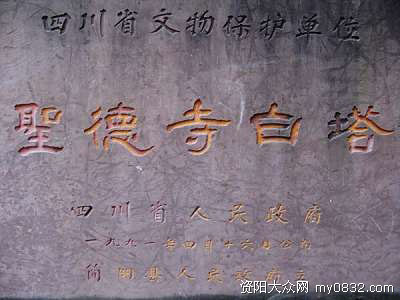 四川省文物保护单位
聖德寺白塔
四川省人民政府
一九九一年四月十六日公布
简阳县人民政府立
资阳大众网 my0832.com